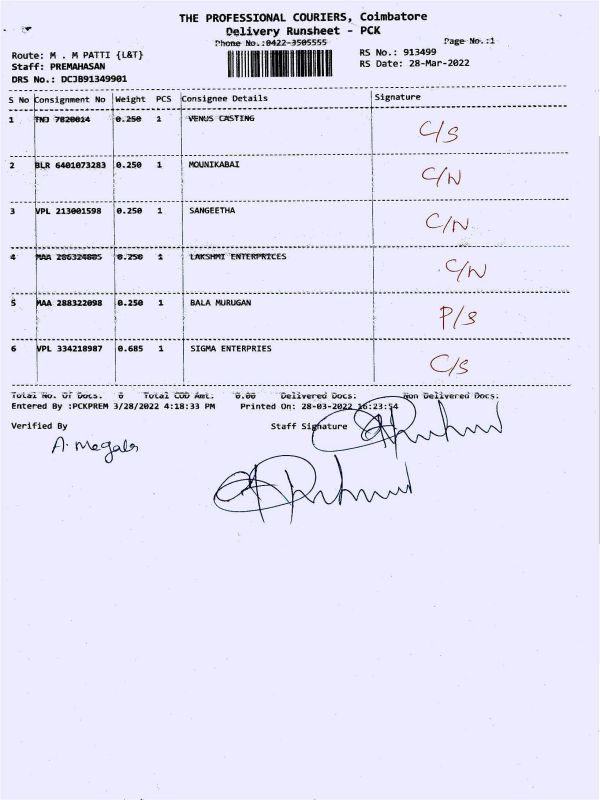 THE PROFESSIONAL COURIERS, Coimbatore
Delivery Runsheet - PCK
Phone No.:0422-3505555 Page No.:1
Route: M . M PATTI {L&T} RS No.: 913499
Staff: PREMAHASAN RS Date: 28-Mar-2022
DRS No.: DCJB91349901
S No Consignment No Weight PCS Consignee Details Signature
1 TNJ 7820014 0.250 1 VENUS CASTING C/S
2 BLR 6401073283 0.250 1 MOUNIKABAI C/N
3 VPL 213001598 0.250 1 SANGEETHA C/N
4 MAA 286324805 0.250 1 LAKSHMI ENTERPRICES C/N
5 MAA 288322098 0.250 1 BALA MURUGAN P/S
6 VPL 334218987 0.685 1 SIGMA ENTERPRIES C/S
Total No. Of Docs. 6 Total COD Amt. 0.00 Delivered Docs: Non Delivered Docs:
Entered By :PCKPREM 3/28/2022 4:18:33 PM Printed On: 28-03-2022 16:23:54
Verified By Staff Signature
A. Megala